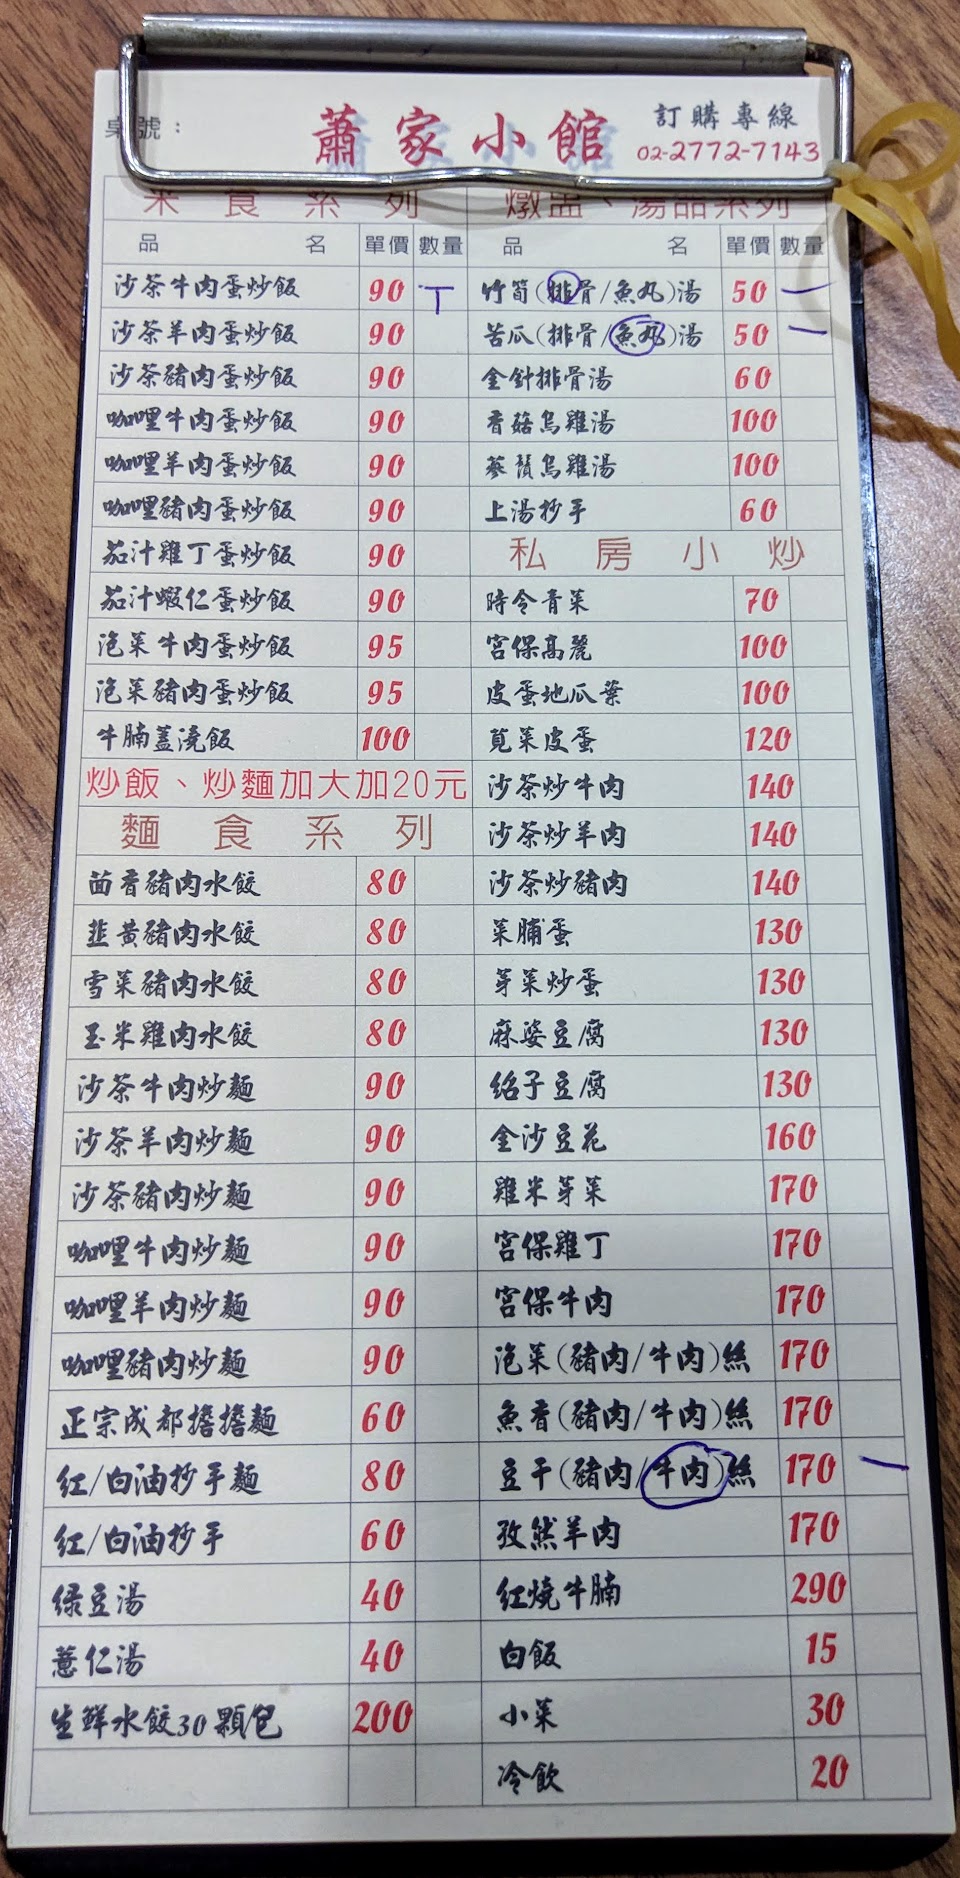 桌號：
蕭家小館
訂購專線
02-2772-7143
米食系列
品名 單價 數量
沙茶牛肉蛋炒飯 90 T
沙茶羊肉蛋炒飯 90
沙茶豬肉蛋炒飯 90
咖哩牛肉蛋炒飯 90
咖哩羊肉蛋炒飯 90
咖哩豬肉蛋炒飯 90
茄汁雞丁蛋炒飯 90
茄汁蝦仁蛋炒飯 90
泡菜牛肉蛋炒飯 95
泡菜豬肉蛋炒飯 95
牛腩蓋澆飯 100
炒飯、炒麵加大加20元
麵食系列
茴香豬肉水餃 80
韭黃豬肉水餃 80
雪菜豬肉水餃 80
玉米雞肉水餃 80
沙茶牛肉炒麵 90
沙茶羊肉炒麵 90
沙茶豬肉炒麵 90
咖哩牛肉炒麵 90
咖哩羊肉炒麵 90
咖哩豬肉炒麵 90
正宗成都擔擔麵 60
紅/白油抄手麵 80
紅/白油抄手 60
綠豆湯 40
薏仁湯 40
生鮮水餃30顆/包 200
燉盅、湯品系列
品名 單價 數量
竹筍(排骨/魚丸)湯 50 一
苦瓜(排骨/魚丸)湯 50 一
金針排骨湯 60
香菇烏雞湯 100
蔘鬚烏雞湯 100
上湯抄手 60
私房小炒
時令青菜 70
宮保高麗 100
皮蛋地瓜葉 100
莧菜皮蛋 120
沙茶炒牛肉 140
沙茶炒羊肉 140
沙茶炒豬肉 140
菜脯蛋 130
芽菜炒蛋 130
麻婆豆腐 130
紹子豆腐 130
金沙豆花 160
雞米芽菜 170
宮保雞丁 170
宮保牛肉 170
泡菜(豬肉/牛肉)絲 170
魚香(豬肉/牛肉)絲 170
豆干(豬肉/牛肉)絲 170 一
孜然羊肉 170
紅燒牛腩 290
白飯 15
小菜 30
冷飲 20